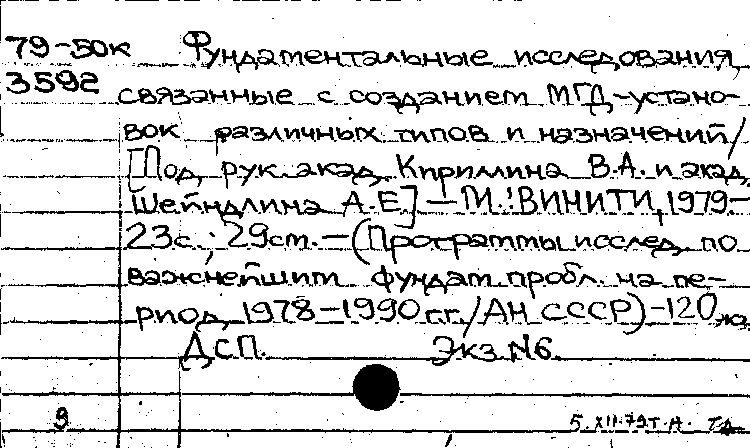 79-50к Фундаментальные исследования,
3592 связанные с созданием МГД-устано-
вок различных типов и назначений/
[Под рук. акад. Кириллина В.А. и акад.
Шейндлина А.Е.] — М.: ВИНИТИ, 1979.-
23с.; 29см. — (Программы исслед. по
важнейшим фундам. пробл. на пе-
риод 1978-1990 г.г./АН СССР)-120 экз.
ДСП. Экз. N6.
9 5.XII.79г.